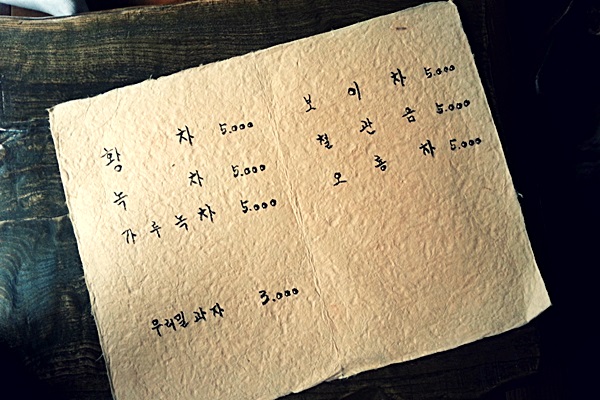 황 차 5.000
녹 차 5.000
가루녹차 5.000
우리밀과자 3.000
보 이 차 5.000
철 관 음 5.000
오 홍 차 5.000